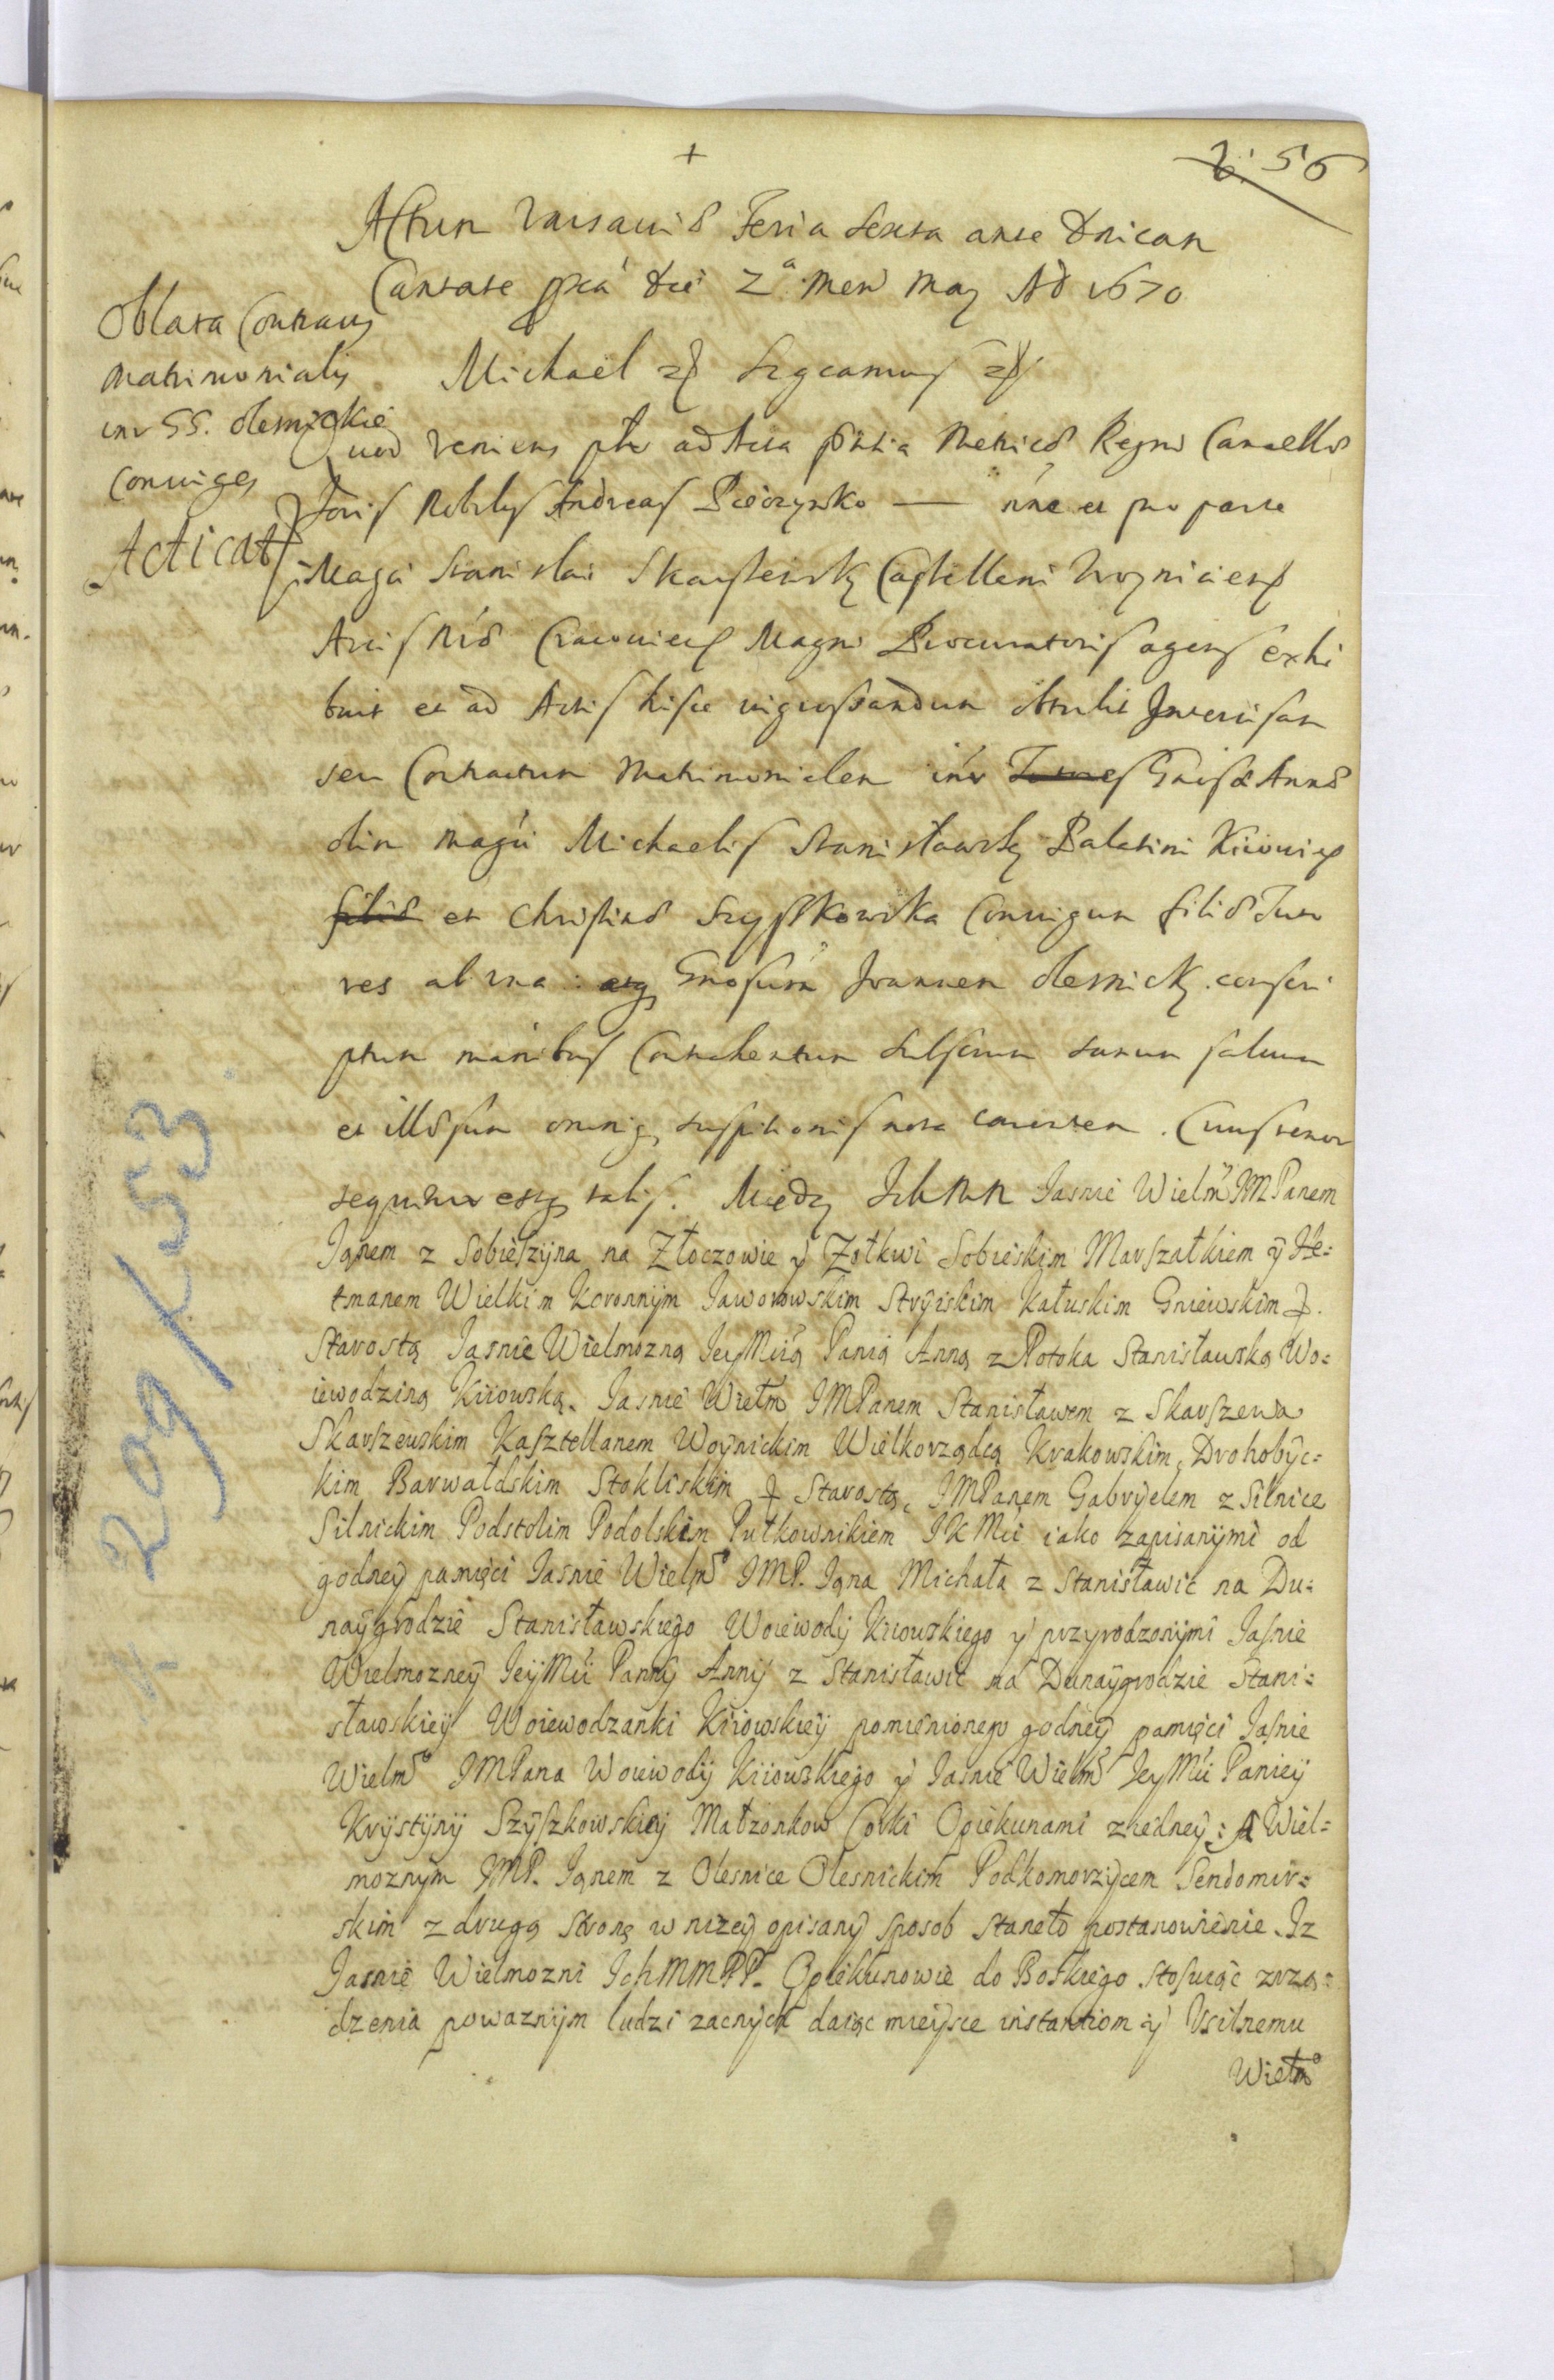 +
56
Actum Varsaviæ Feria sexta ante Dnicam
Cantate pxa die 2ª men May Ad 1670
Oblata Contractus
matrimonialis
intr SS. olesnickie
coniuges
Acticat
Michaël etc Sigcamus etc
Quod veniens ptr ad Acta pñtia Metrices Regni Cancellæ
Joris Nobilis Andreas Pieczynsko — nne et pro parte
Magci Stanislai Skarszewsky Castellani Woynicien
Arcis Nræ Cracovien Magni Procuratoris agens exhi
buit et ad Actis hisce ingrossandum obtulit Intercisam
seu Contractum Matrimonialem intr Gnosæ Annæ
olim Magci Michaelis Stanisławsky Palatini Kiiovien
filiæ et Christinæ Szyszkowska Coniugum filiæ Juw
res ab vna: atq Gnosum Joannem olesnicky conscri
ptum manibus Contrahentium subscriptum sanum saluum
et illæsum omniq suspitionis nota carentem. Cuius tenor
sequitur estq talis. Między Ich Jasnie Wielm IMPanem
Janem z Sobieszyna na Złoczowie y Zołkwi Sobieskim Marszałkiem y He=
tmanem Wielkim Koronnym Jaworowskim Stryiskim Kałuskim Gniewskim etc.
Starostą Jasnie Wielmozną JeyMcią Panią Anną z Potoka Stanisławską Wo=
iewodziną Kiiowską. Jasnie Wielm IMPanem Stanisławem z Skarszewa
Skarszewskim Kasztellanem Woynickim Wielkorządcą Krakowskim, Drohobyc=
kim Barwałdskim Stokliskim etc Starostą, IMPanem Gabryelem z Silnice
Silnickim Podstolim Podolskim Pułkownikiem JKMci iako zapisanymi od
godney pamięci Jasnie Wielmo IMP. Jana Michała z Stanisławic na Du=
naygrodzie Stanisławskiego Woiewody Kiiowskiego y przyrodzonymi Jasnie
Wielmozney JeyMci Panny Anny z Stanisławic na Dunaygrodzie Stani=
sławskiey Woiewodzanki Kiiowskiey pomienionego godney pamięci Jasnie
Wielmo IMPana Woiewody Kiiowskiego y Jasnie Wielmo JeyMci Paniey
Krystyny Szyszkowskiey Małzonkow Corki Opiekunami z iedney: A Wiel=
moznym IMP. Janem z Olesnice Olesnickim Podkomorzycem Sendomir=
skim z drugą stroną w nizey opisany sposob staneło postanowienie. Iz
Jasnie Wielmozni IchMMPP. Opiekunowie do Boskiego stosuiąc zrzą=
dzenia powaznym ludzi zacnych daiąc mieysce instantiom y Vsilnemu
Wielmo
K 209/153